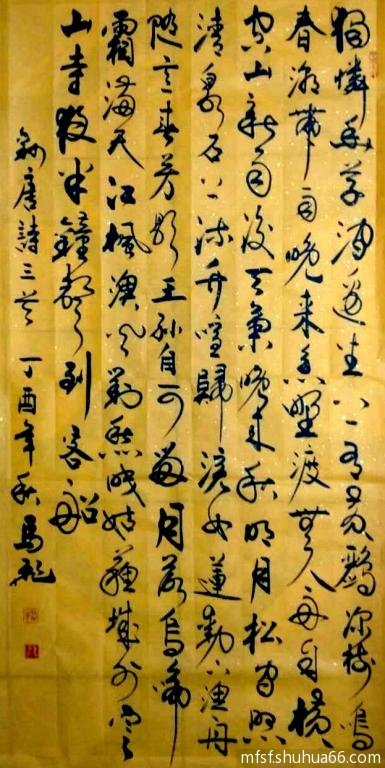 獨憐幽草澗邊生上有黄鸝深樹鳴
春潮帶雨晚来急野渡無人舟自横
空山新雨後天氣晚来秋明月松間照
清泉石上流竹喧歸浣女蓮動下漁舟
随意春芳歇王孫自可留月落烏啼
霜滿天江楓漁火對愁眠姑蘇城外寒
山寺夜半鐘聲到客船
録唐詩三首 丁酉年秋 馬
mfsfshuhua66.com